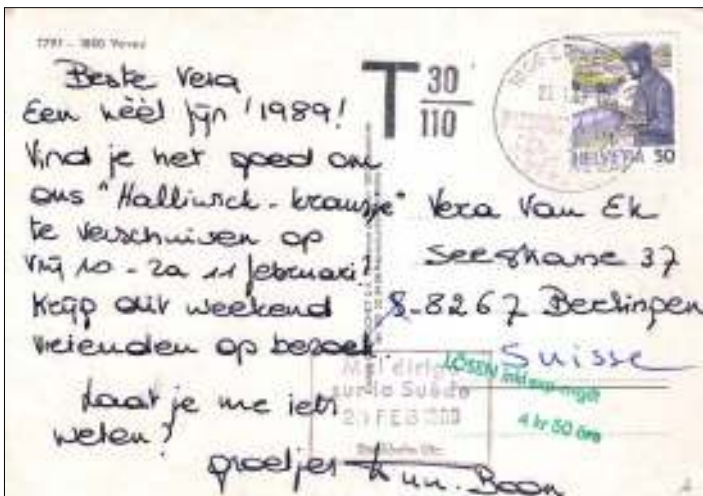 1791 - 1800 Vevey
Beste Vera
Een héél fijn '1989!
Vind je het goed om
ons "Halliwick - kransje"
te verschuiven op
Vrij 10 - za 11 februari?
Krijg dit weekend
vrienden op bezoek.
Laat je me iets
weten?
groetjes
Ann. Boon
T 30
110
HELVETIA 50
Vera Van Ek
Seestrasse 37
8-8267 Berlingen
Suisse
Mal dirigé
sur la Suède
LÖSEN inkl exp-avgift
4 kr 50 öre